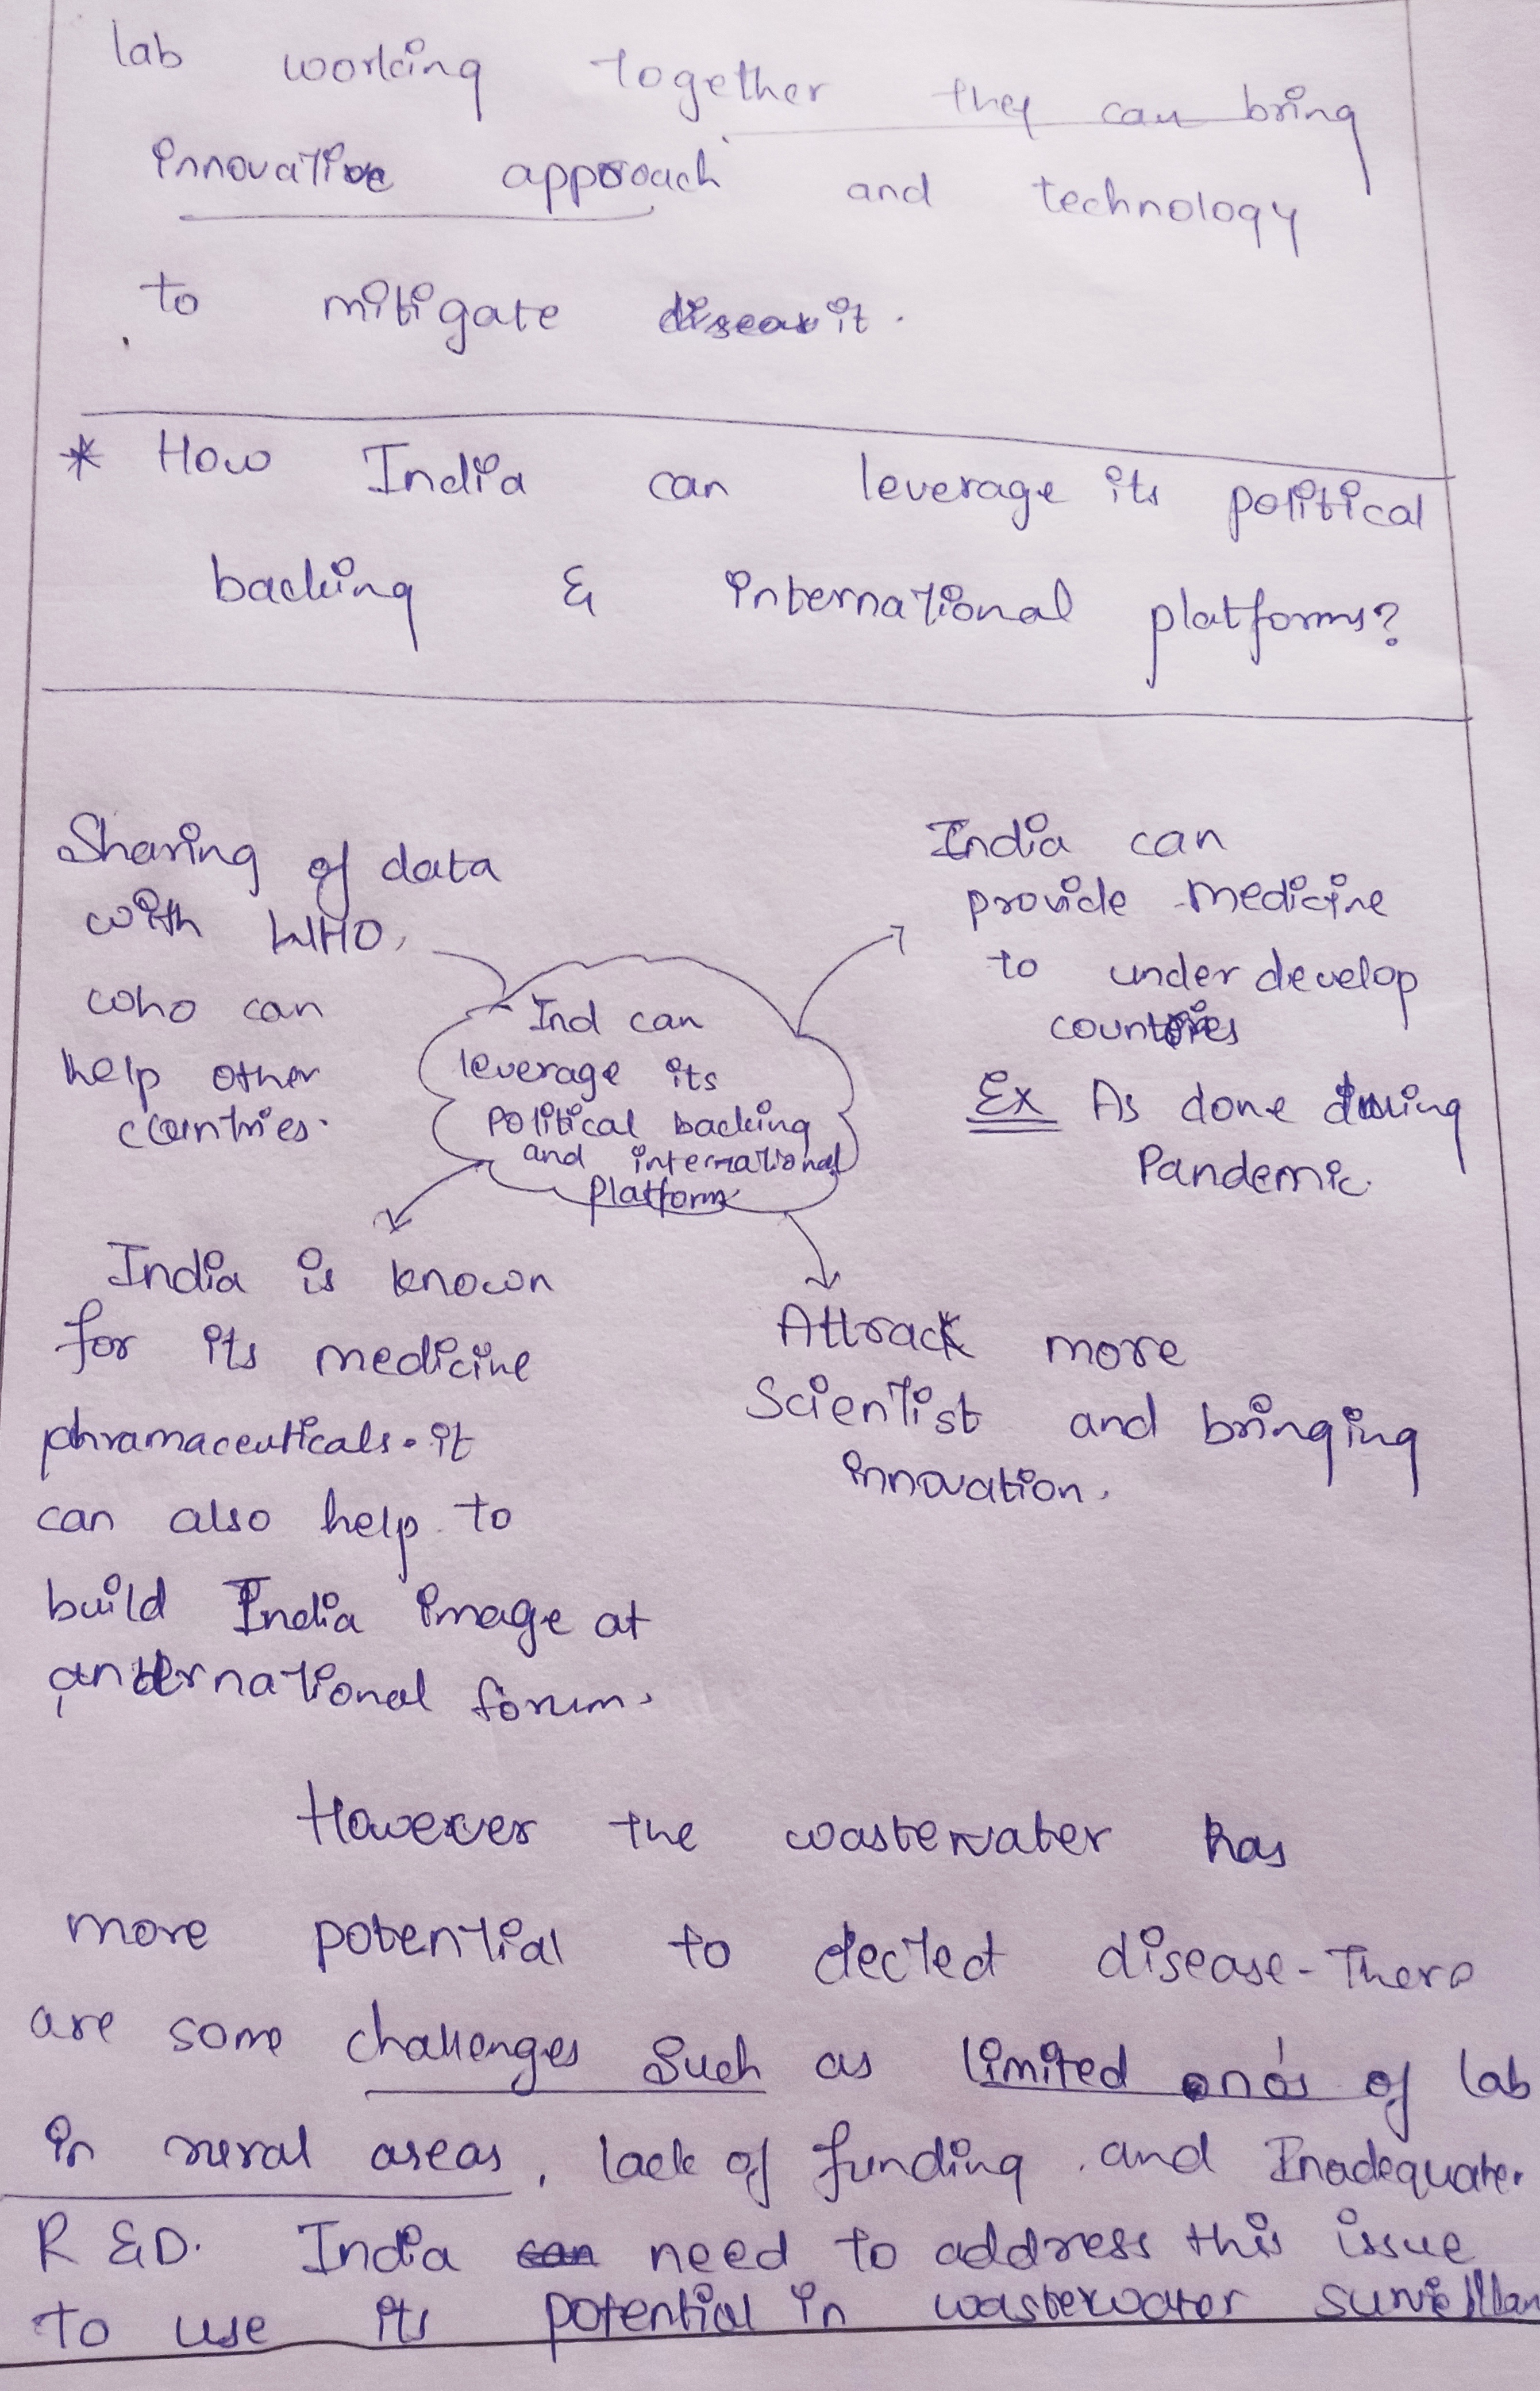 lab working together they can bring
innovative approach and technology
to mitigate it.
* How India can leverage its political
backing & international platforms?
Sharing of data
with WHO,
who can
help other
countries.
India can
provide medicine
to under develop
countries
Ex As done during
Pandemic.
Ind can
leverage its
political backing
and international
platform
India is known
for its medicine
phramaceuticals. it
can also help to
build India image at
international forum.
Attract more
Scientist and bringing
innovation.
However the wastewater has
more potential to dected disease. There
are some challenges such as limited no's of lab
in rural areas, lack of funding and Inadequate
R &D. India need to address this issue
to use its potential in wastewater